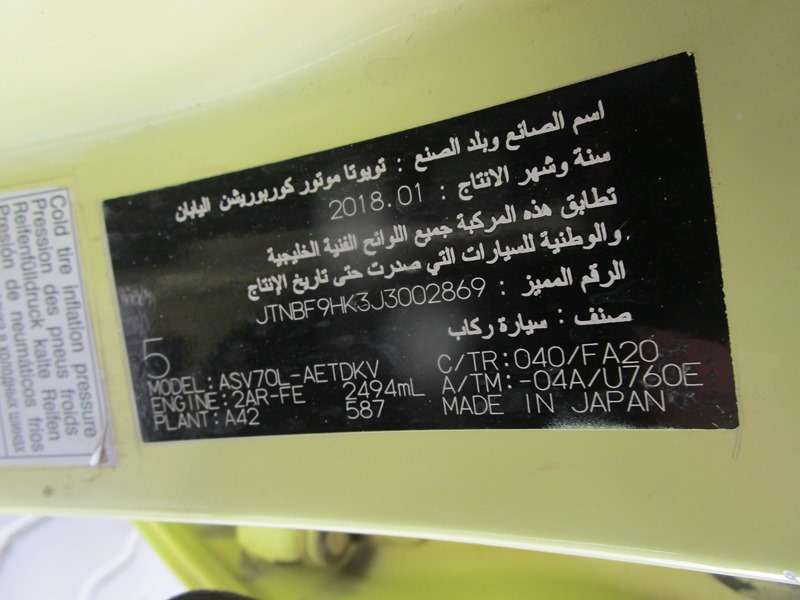 اسم الصانع وبلد الصنع : تويوتا موتور كوربوريشن اليابان
سنة وشهر الانتاج : 2018.01
تطابق هذه المركبة جميع اللوائح الفنية الخليجية
والوطنية للسيارات التي صدرت حتى تاريخ الإنتاج
الرقم المميز : JTNBF9HK3J3002869
صنف : سيارة ركاب
5
MODEL:ASV70L-AETDKV C/TR:040/FA20
ENGINE:2AR-FE 2494mL A/TM:-04A/U760E
PLANT:A42 587 MADE IN JAPAN
Cold tire inflation pressure
Pression des pneus froids
Reifenfülldruck kalte Reifen
Presión de neumáticos fríos